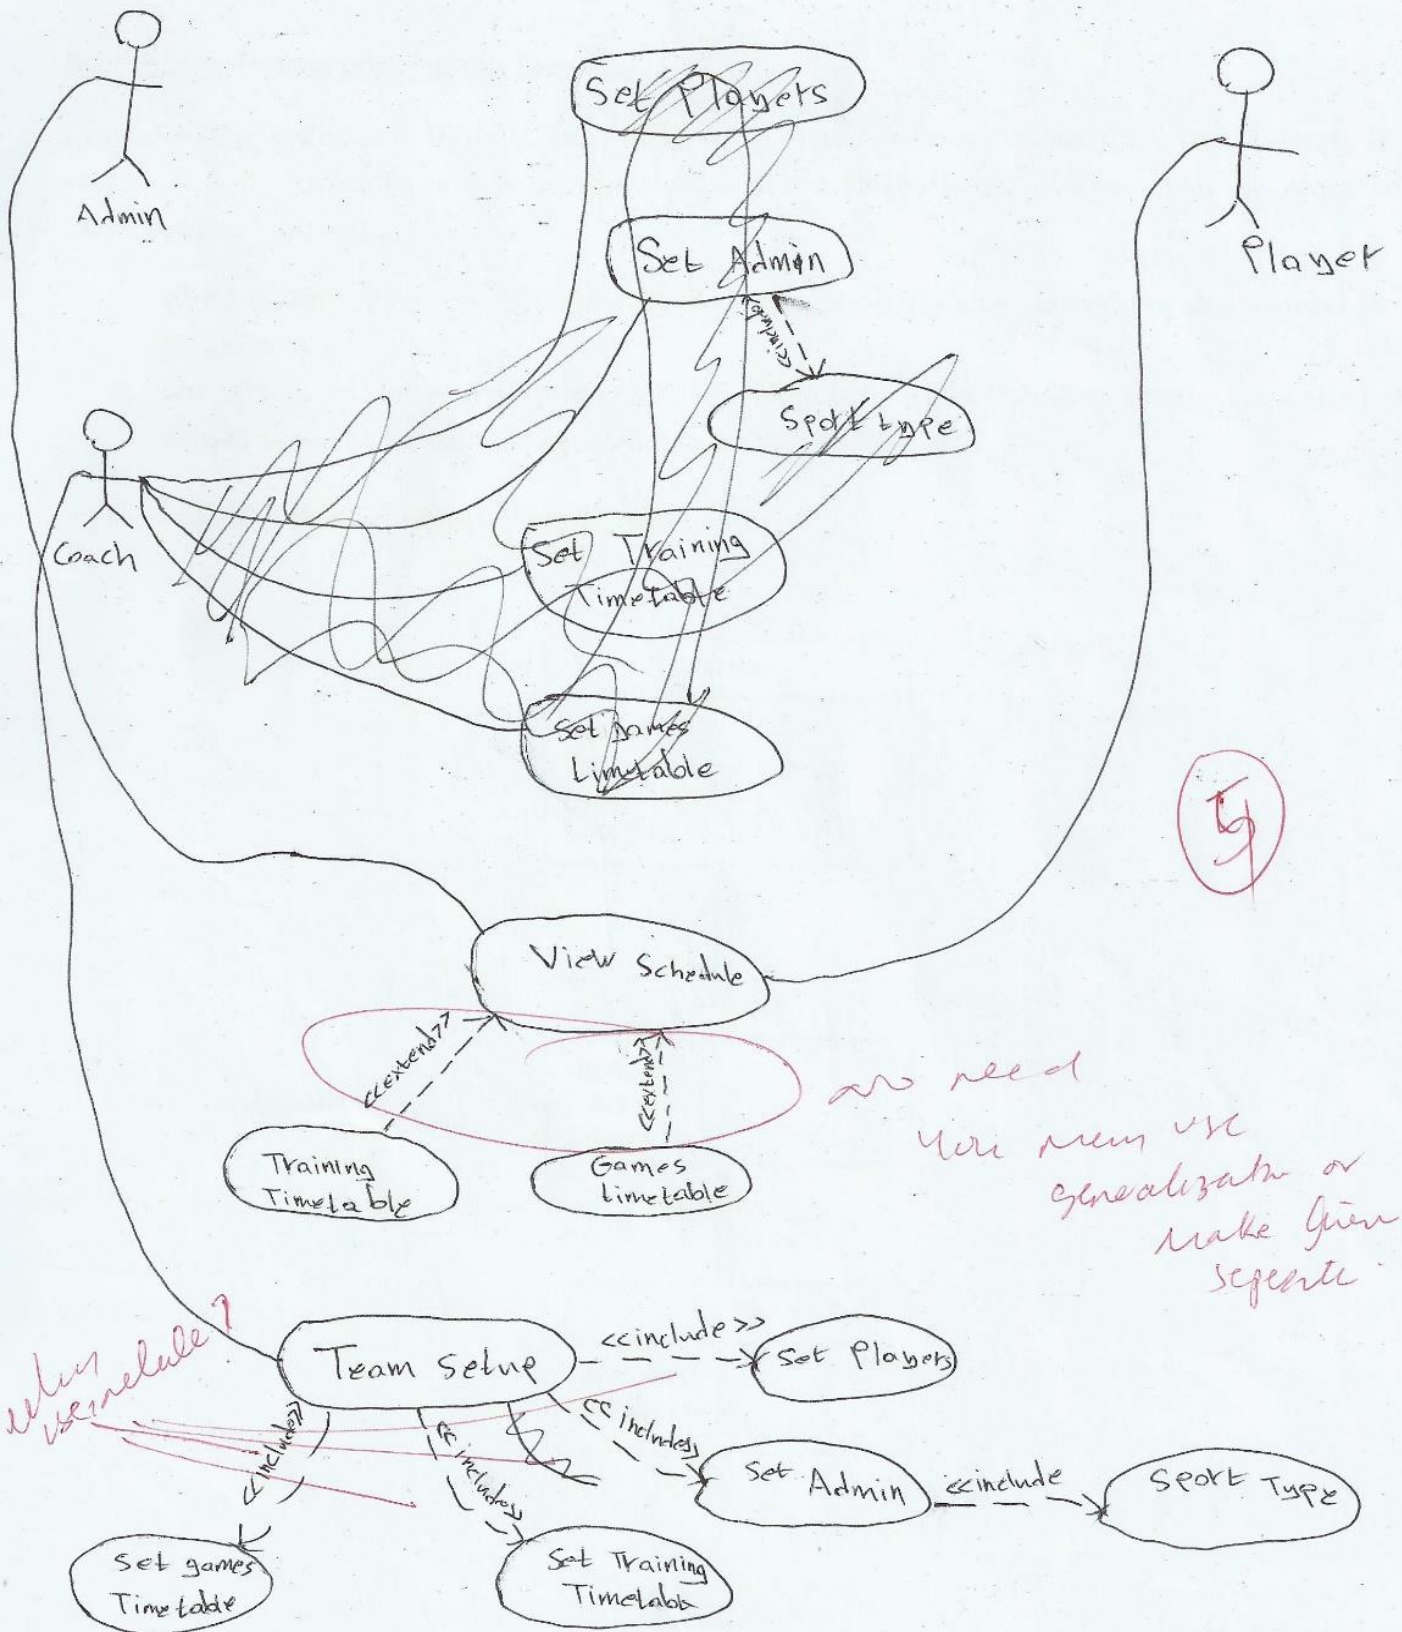 Set Players
Admin
Set Admin
Player
<<include>>
Sport type
Coach
Set Training
Timetable
Set games
timetable
View Schedule
<<extend>>
<<extend>>
no need
You may use
Training
Timetable
Games
timetable
generalization or
make them
seperate
why
use include?
Team setup
<<include>>
Set Players
<<include>>
<<include>>
<<include>>
Set Admin
<<include
Sport Type
Set games
Timetable
Set Training
Timetable